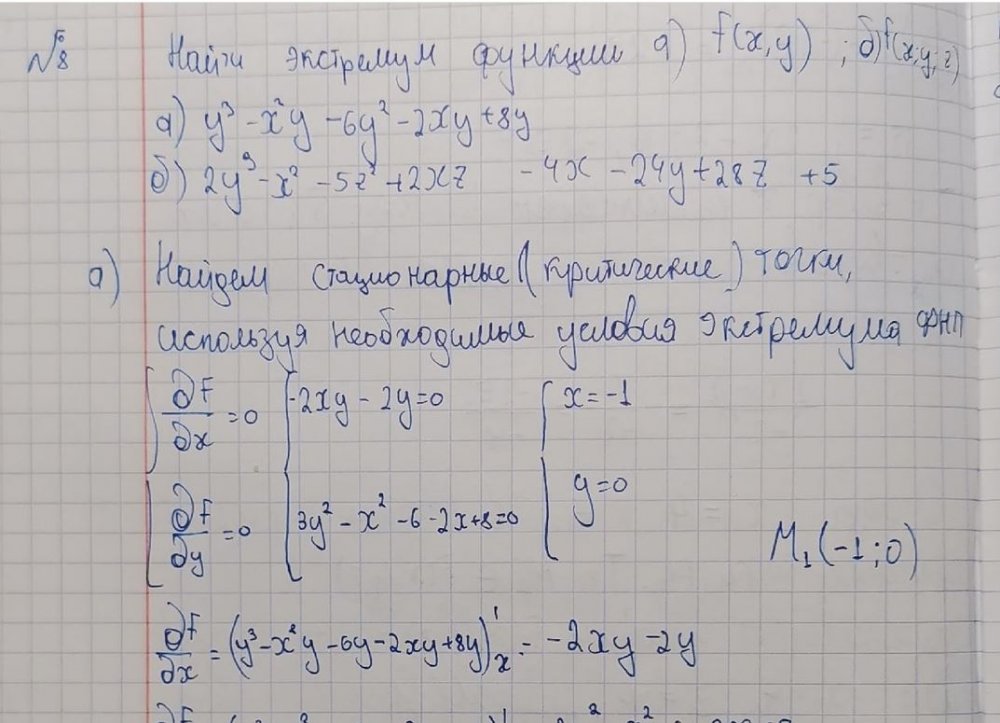 №8 Найти экстремум функции а) f(x,y) ; б) f(x,y,z)
а) y³ - x²y - 6y² - 2xy + 8y
б) 2y³ - x² - 5z² + 2xz - 4x - 24y + 28z + 5
а) Найдем стационарные (критические) точки,
используя необходимые условия экстремума ФНП
∂f/∂x = 0 -2xy - 2y = 0 x = -1
∂f/∂y = 0 3y² - x² - 6 - 2x + 8 = 0 y = 0
M₁(-1; 0)
∂f/∂x = (y³ - x²y - 6y - 2xy + 8y)'ₓ = -2xy - 2y